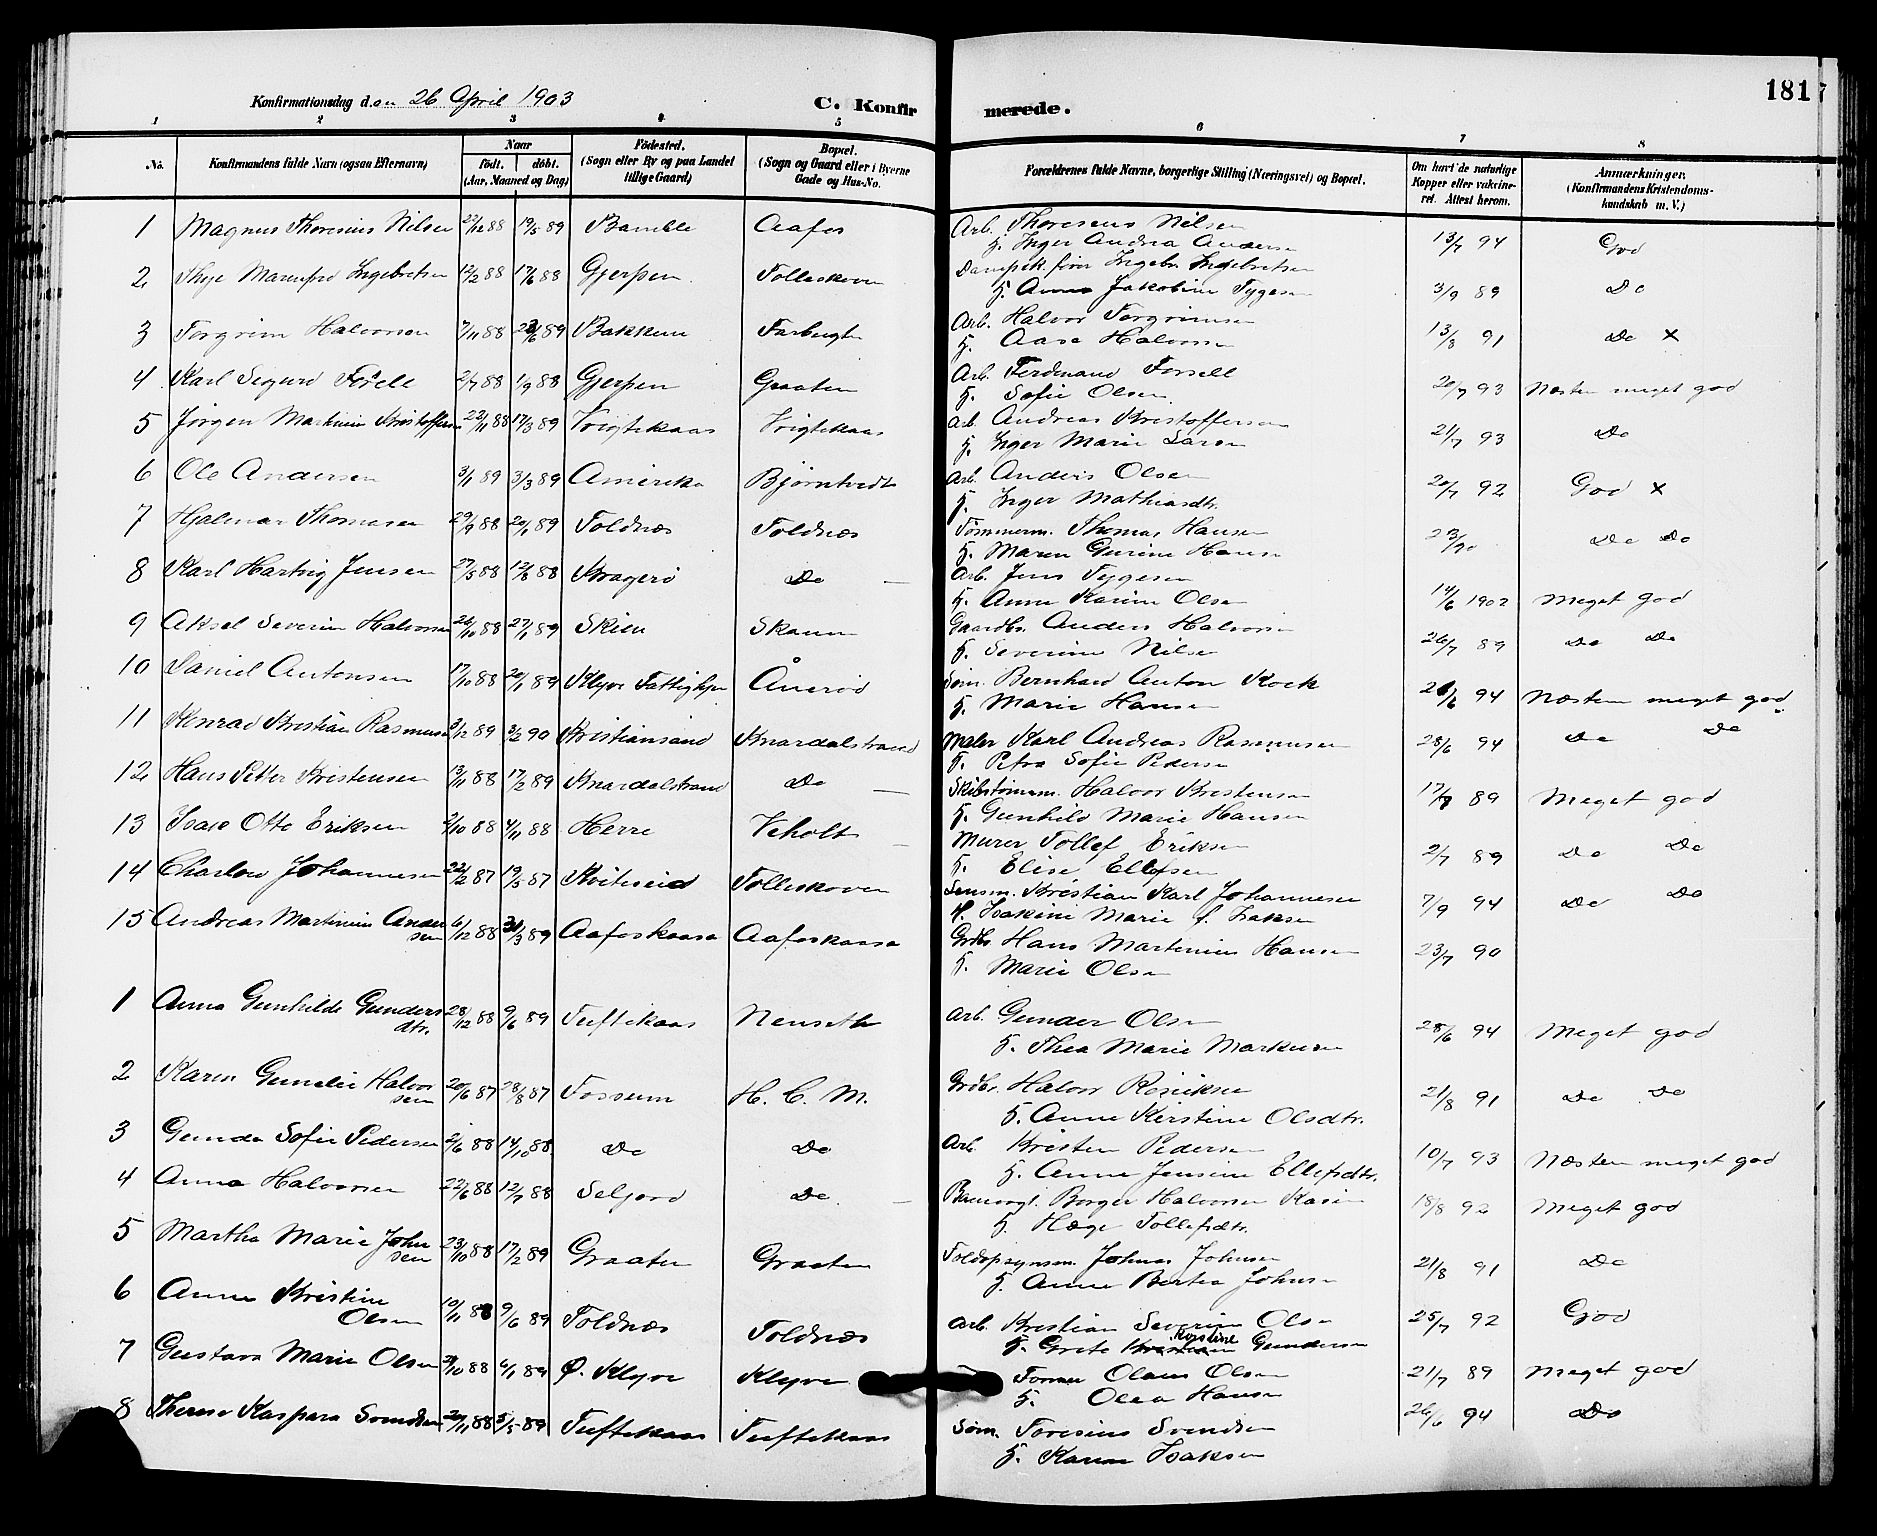 Konfirmationsdag den 26 April 1903
C. Konfirmerede.
181
1 2 3 4 5 6 7 8
No. Konfirmandens fulde Navn (ogsaa Efternavn) Naar født. døbt. (Aar, Maaned og Dag) Fødested. (Sogn eller By og paa Landet tillige Gaard) Bopæl. (Sogn og Gaard eller i Byerne Gade og Hus-No. Forældrenes fulde Navne, borgerlige Stilling (Næringsvei) og Bopæl. Om havt de naturlige Kopper eller vaccineret. Attest herom. Anmærkninger. (Konfirmandens Kristendomskundskab m. V.)
1 Magnus Thoresius Nilsen 22/12 88 19/5 89 Bamble Aafos Arb. Thoresius Nilsen 13/7 94 God
H. Inger Andrea Andersen
2 Ingebretsen 12/2 88 17/6 88 Gjerpen Tolleskoven Ingebr. Ingebretsen 3/9 89 Do
H. Anne Jakobine Tygesen
3 Torgrim Halvorsen 7/11 88 23/6 89 Bakken Farbugten Arb. Halvor Torgrimsen 13/8 91 Do x
H. Aase Halvorsen
4 Karl Sigurd 2/7 88 1/9 88 Gjerpen Graaten Arb. Ferdinand Forsell 20/7 93 Næsten meget god
H. Sofie Olsen
5 Jörgen Martinius Kristoffersen 22/11 88 17/3 89 Voigtskaas Voigtskaas Arb. Andreas Kristoffersen 21/7 93 Do
H. Inger Marie Larsen
6 Ole Andersen 3/1 89 3/3 89 Amerika Bjørntvedt Arb. Anders Olsen 20/7 92 God x
H. Inger Mathiasdtr.
7 Hjalmar Thomesen 29/9 88 20/1 89 Toldnæs Toldnæs Tömmerm. Thomas Hansen 23/90 Do Do
H. Maren Gurine Hansen
8 Karl Hartvig Jensen 27/5 88 12/8 88 Kragerö Do — Arb. Jens Tygesen 14/6 1902 Meget god
H. Anne Karine Olsen
9 Aksel Severin Halvorsen 26/10 88 27/1 89 Skien Skaun Gaardbr. Anders Halvorsen 26/7 89 Do Do
H. Severine Nilsen
10 Daniel Antonsen 17/10 88 20/1 89 Klyve Fattighjem Ånerød Søm. Bernhard Anton Kock 26/6 94 Næsten meget god
H. Marie Hansen
11 Konrad Kristian Rasmusen 3/12 89 3/2 90 Kristiansand Knardalstrand Maler Karl Andreas Rasmusen 28/6 94 Do Do
H. Petra Sofie Pedersen
12 Hans Petter Kristensen 13/11 88 17/2 89 Knardalstrand Do — Skibstömm. Halvor Kristensen 17/7 89 Meget god
H. Gunhild Marie Hansen
13 Isac Otto Eriksen 2/10 88 4/11 88 Herre Veholt Murer Tollef Eriksen 2/7 89 Do Do
H. Elise Ellefsen
14 Johannesen 22/2 87 19/5 87 Kviteseid Tolleskoven Kristian Karl Johannesen 7/9 94 Do Do
H. Joakine Marie f. Isaksen
15 Andreas Martinius Andersen 6/12 88 31/3 89 Aafoskaasa Aafoskaasa Grdbr. Hans Martinius Hansen 23/7 90
H. Marie Olsen
1 Anna Gunhilde Gundersdtr. 28/12 88 9/6 89 Tuftekaas Nenseth Arb. Gunder Olsen 28/6 94 Meget god
H. Thea Marie Markusen
2 Karen Halvorsen 20/6 87 28/8 87 Fossum H. C. M. Grdbr. Halvor 21/8 91 Do Do
H. Anne Kirstine Olsdtr.
3 Gunda Sofie Pedersen 2/6 88 14/10 88 Do Do Arb. Kristen Pedersen 10/7 93 Næsten meget god
H. Anne Jensine Ellefsdtr.
4 Anna Halvorsen 22/6 88 12/7 88 Seljord Do — Borger Halvorsen 18/8 92 Meget god
H. Hæge Tollefsdtr.
5 Martha Marie Johnsen 23/10 88 17/2 89 Graaten Graaten Toldopsynsm. Johnas Johnsen 21/8 91 Do
H. Anne Bertea Johnsen
6 Anne Kristine Olsen 10/11 88 9/6 89 Toldnæs Toldnæs Arb. Kristian Severin Olsen 25/7 92 God
H. Grete Kirstine Gundersen
7 Gustava Marie Olsen 31/10 88 6/1 89 Ø. Klyve Klyve Olaus Olsen 21/7 89 Meget god
H. Olea Hansen
8 Therese Kaspara Svendsen 20/11 88 5/5 89 Tuftekaas Tuftekaas Søm. Toresius Svendsen 26/6 94 Do
H. Karen Isaksen